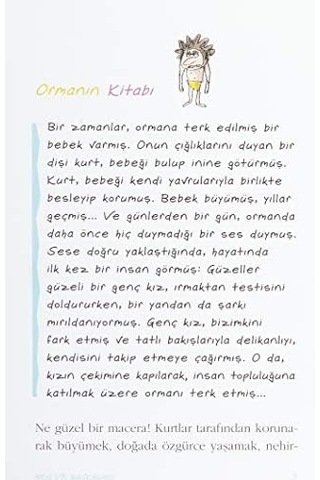 Ormanın Kitabı
Bir zamanlar, ormana terk edilmiş bir
bebek varmış. Onun çığlıklarını duyan bir
dişi kurt, bebeği bulup inine götürmüş.
Kurt, bebeği kendi yavrularıyla birlikte
besleyip korumuş. Bebek büyümüş, yıllar
geçmiş... Ve günlerden bir gün, ormanda
daha önce hiç duymadığı bir ses duymuş.
Sese doğru yaklaştığında, hayatında
ilk kez bir insan görmüş: Güzeller
güzeli bir genç kız, ırmaktan testisini
doldururken, bir yandan da şarkı
mırıldanıyormuş. Genç kız, bizimkini
fark etmiş ve tatlı bakışlarıyla delikanlıyı,
kendisini takip etmeye çağırmış. O da,
kızın çekimine kapılarak, insan topluluğuna
katılmak üzere ormanı terk etmiş...
Ne güzel bir macera! Kurtlar tarafından koruna-
rak büyümek, doğada özgürce yaşamak, nehir-